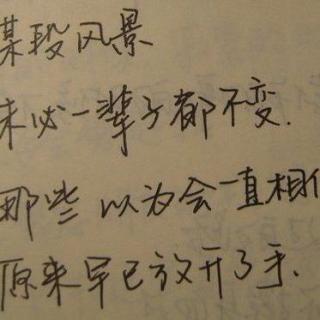 某段风景
未必一辈子都不变.
那些以为会一直相
原来早已放开了手.